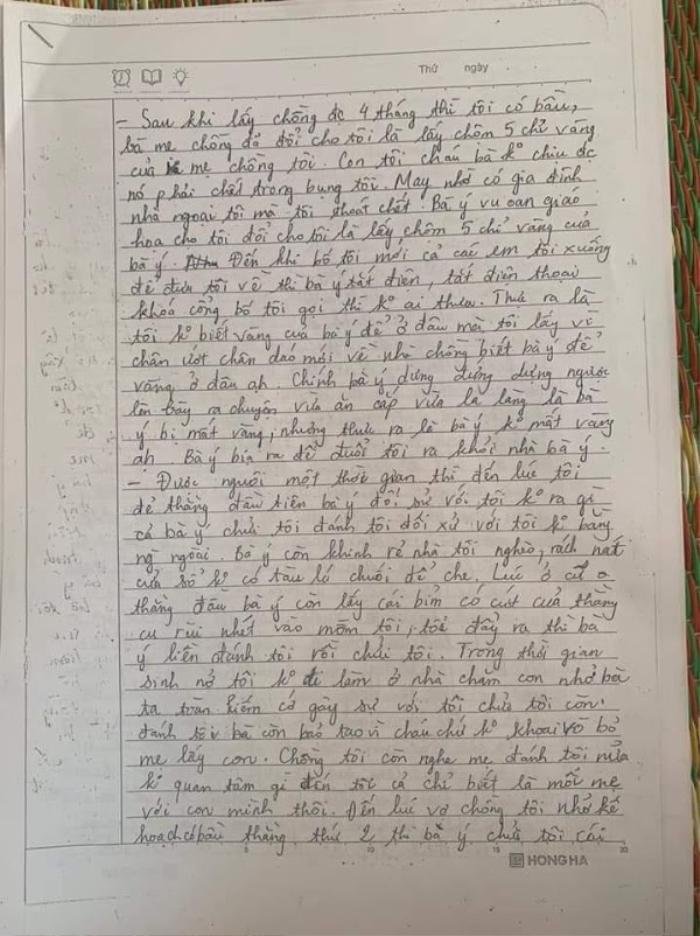 Thứ ngày
- Sau khi lấy chồng đc 4 tháng thì tôi có bầu,
bà mẹ chồng đã đổi cho tôi là lấy chôm 5 chỉ vàng
của mẹ chồng tôi. Con tôi cháu bà k° chịu đc
nó phải chết trong bụng tôi. May nhờ có gia đình
nhà ngoại tôi mà tôi thoát chết. Bà ý vu oan giáo
hoa cho tôi đổi cho tôi là lấy chôm 5 chỉ vàng của
bà ý. Đến khi bố tôi mới cả các em tôi xuống
để đưa tôi về thì bà ý tắt điện, tắt điện thoại
khóa cổng bố tôi gọi thì k° ai thưa. Thưc ra là
tôi k° biết vàng của bà ý để ở đâu mà tôi lấy về
chân ướt chân dáo mới về nhà chồng biết bà ý để
vàng ở đâu ạh. Chính bà ý dưng đứng dựng ngược
lên bầy ra chuyện vừa ăn cắp vừa la làng là bà
ý bị mất vàng, nhưng thưc ra là bà ý k° mất vàng
ạh. Bà ý bịa ra để đuổi tôi ra khỏi nhà bà ý.
- Được nguôi một thời gian thì đến lúc tôi
đẻ thằng đầu tiên bà ý đối sử với tôi k° ra gì
cả bà ý chửi tôi đánh tôi đối xử với tôi k° bằng
ng ngoài. Bà ý còn khinh rẻ nhà tôi nghèo, rách nát
cửa sổ k° có tàu lá chuối để che. Lúc ở cữ
thằng đầu bà ý còn lấy cái bỉm có cứt của thằng
cu rùi nhét vào mồm tôi, tôi đẩy ra thì bà
ý liền đánh tôi rồi chửi tôi. Trong thời gian
sinh nở tôi k° đi làm ở nhà chăm con nhỏ bà
ta toàn kiếm cớ gây sự với tôi chửi tôi còn
đánh tôi bà còn bảo tao vì cháu chứ k° khoai vô bỏ
mẹ lấy con. Chồng tôi còn nghe mẹ đánh tôi nữa
k° quan tâm gì đến tôi cả chỉ biết là mỗi mẹ
với con mình thôi. Đến lúc vợ chồng tôi nhỡ kế
hoạch có bầu thằng thứ 2 thì bà ý chửi tôi cái
5 10 15 20
HONG HA